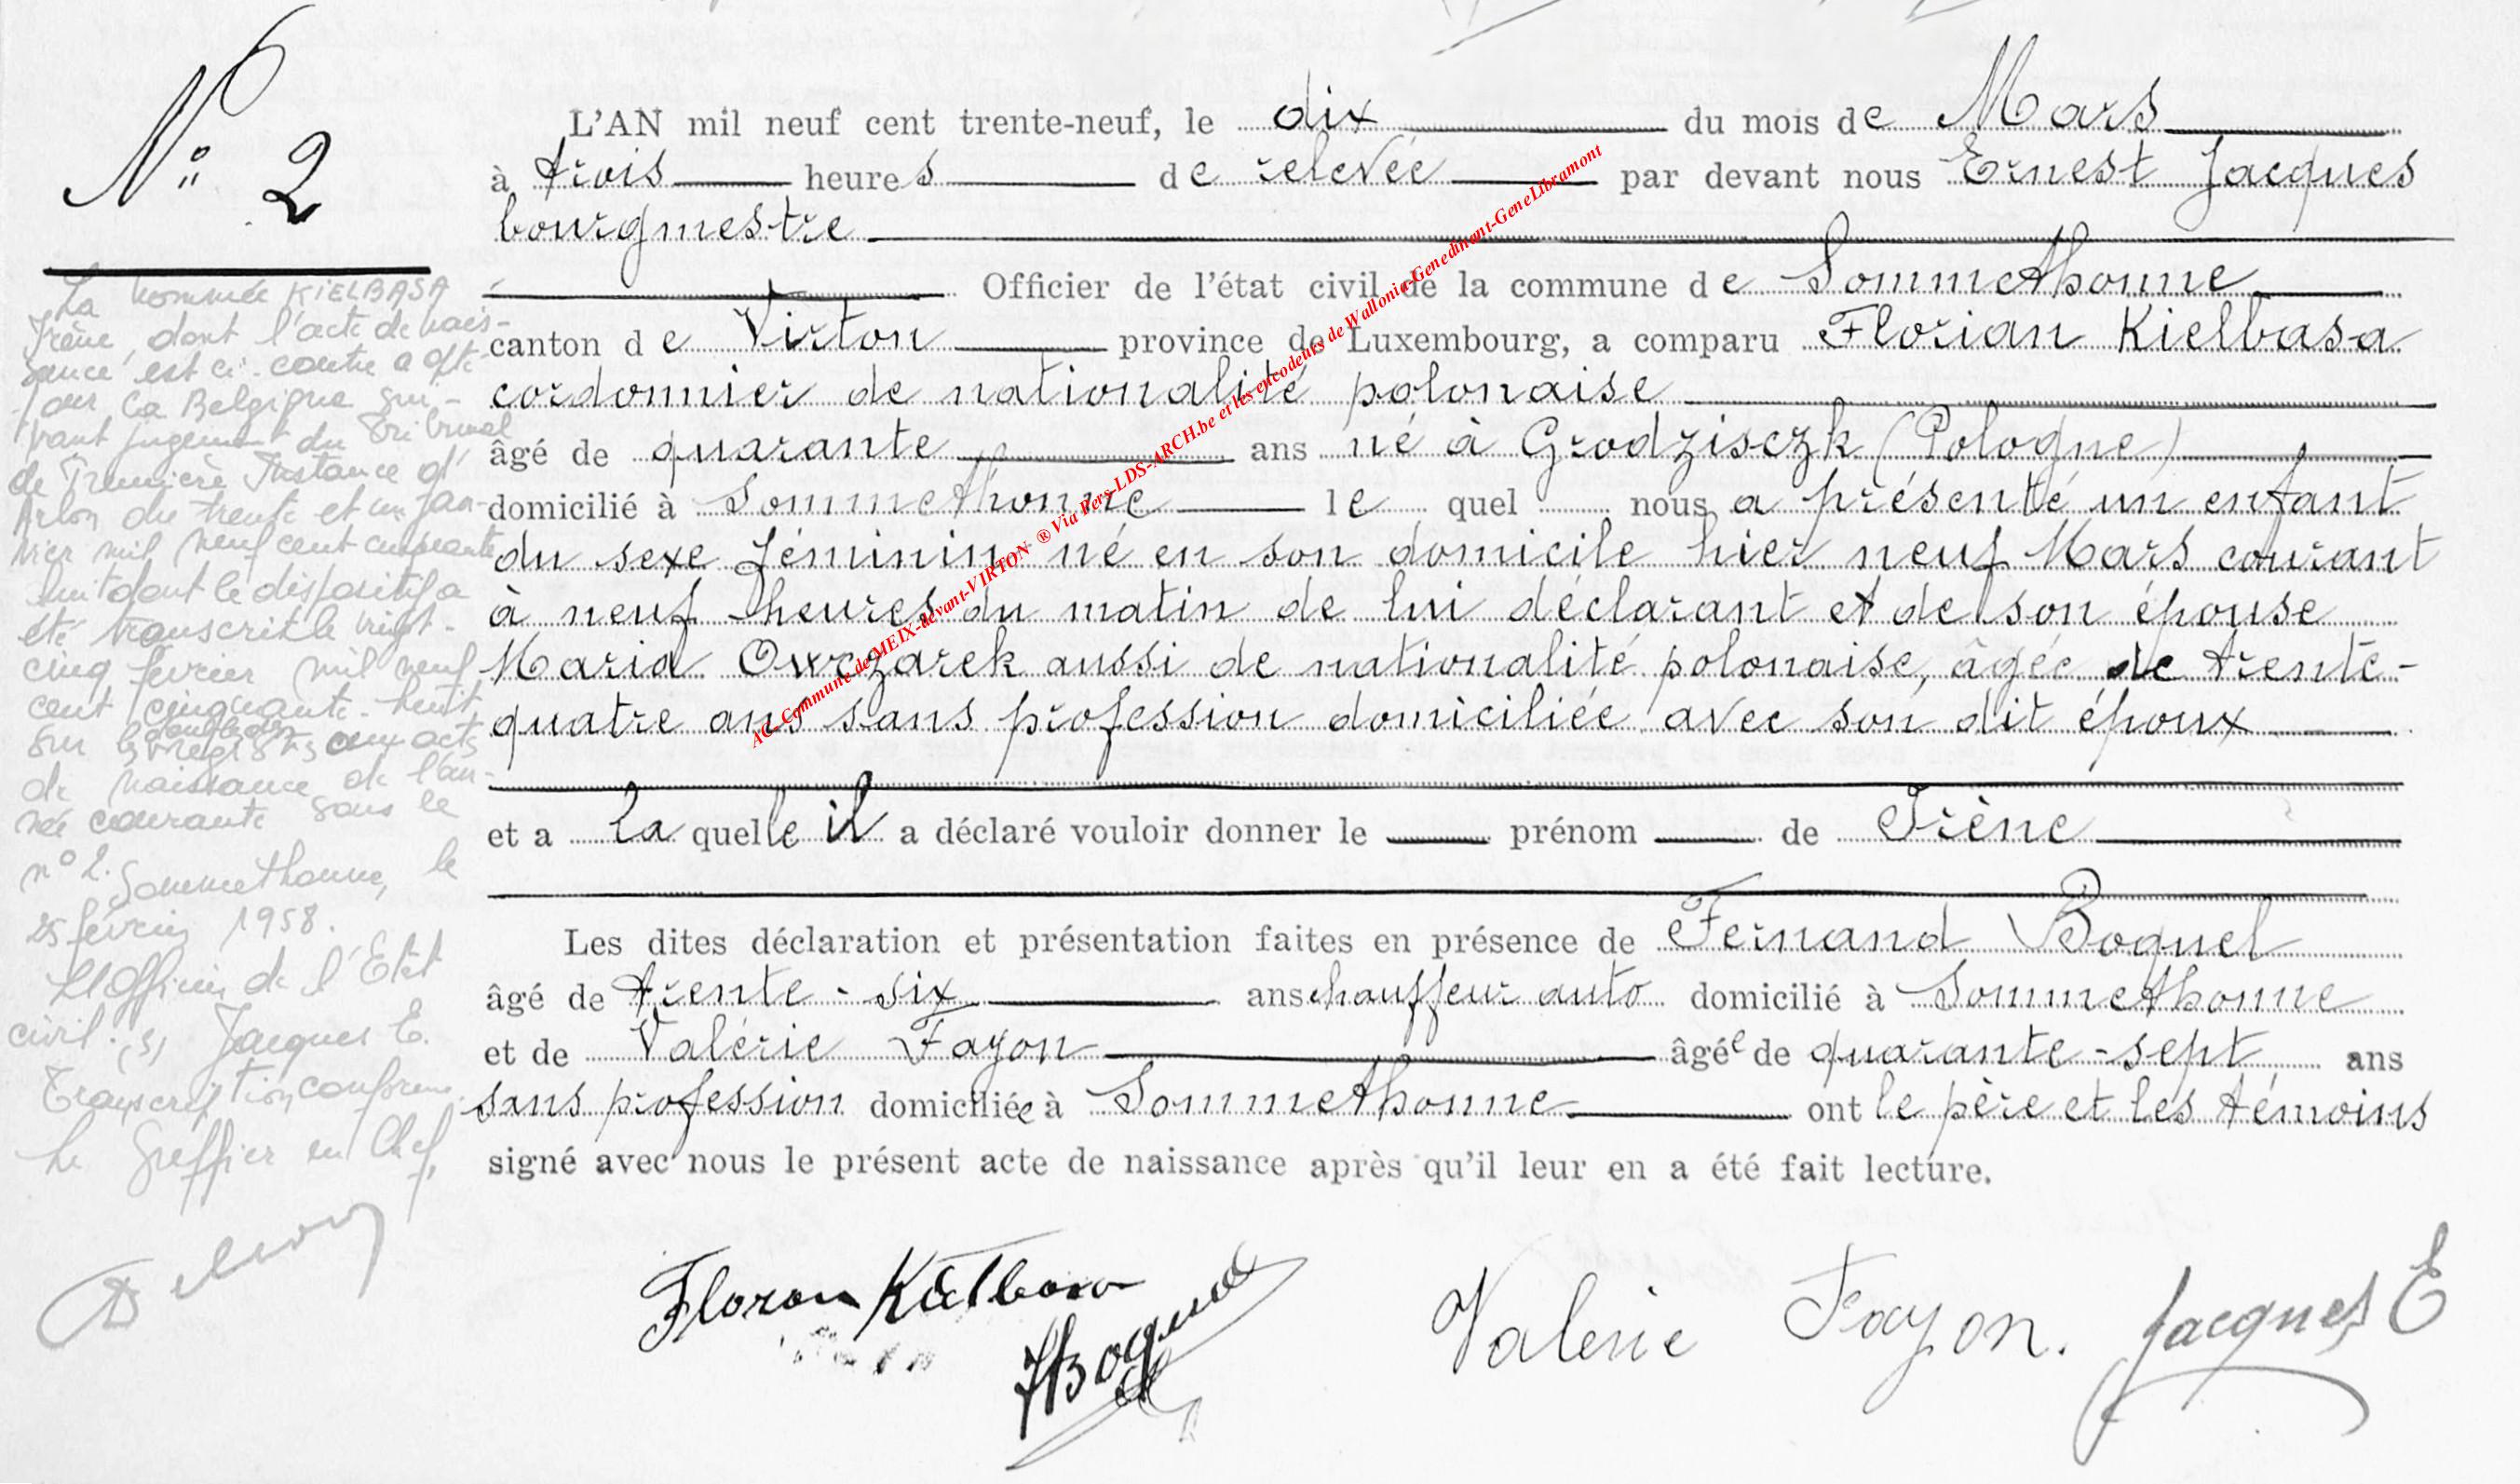 N° 2
L'AN mil neuf cent trente-neuf, le dix du mois de Mars
à trois heures de relevée par devant nous Ernest Jacques
bourgmestre
Officier de l'état civil de la commune de Sommethonne
canton de Virton province de Luxembourg, a comparu Florian Kielbasa
cordonnier de nationalité polonaise
âgé de quarante ans né à Grodzisczk (Pologne)
domicilié à Sommethonne le quel nous a présenté un enfant
du sexe féminin né en son domicile hier neuf Mars courant
à neuf heures du matin de lui déclarant et de son épouse
Maria Owczarek aussi de nationalité polonaise, âgée de trente-
quatre ans sans profession domiciliée avec son dit époux
et a la quelle il a déclaré vouloir donner le prénom de Irène
Les dites déclaration et présentation faites en présence de Fernand Boquel
âgé de trente-six ans chauffeur auto domicilié à Sommethonne
et de Valérie Fayon âgée de quarante-sept ans
sans profession domiciliée à Sommethonne ont le père et les témoins
signé avec nous le présent acte de naissance après qu'il leur en a été fait lecture.
La nommée KIELBASA
Irène, dont l'acte de nais-
sance est ci-contre a opté
pour la Belgique sui-
vant jugement du Tribunal
de Première Instance d'
Arlon du trente et un jan-
vier mil neuf cent cinquante
huit dont le dispositif a
été transcrit le vingt-
cinq février mil neuf
cent cinquante-huit
sur les doubles registres aux actes
de naissance de l'an-
née courante sous le
n° 2. Sommethonne, le
25 février 1958.
L'Officier de l'Etat
civil. (s) Jacques E.
Transcription conforme
Le Greffier en Chef,
Florian Kielbasa
F Boquel
Valerie Fayon.
Jacques E
AC-Commune de MEIX-devant-VIRTON ® Via Pers-LDS-ARCH.be et les encodeurs de Wallonia-Genedinant-GeneLibramont